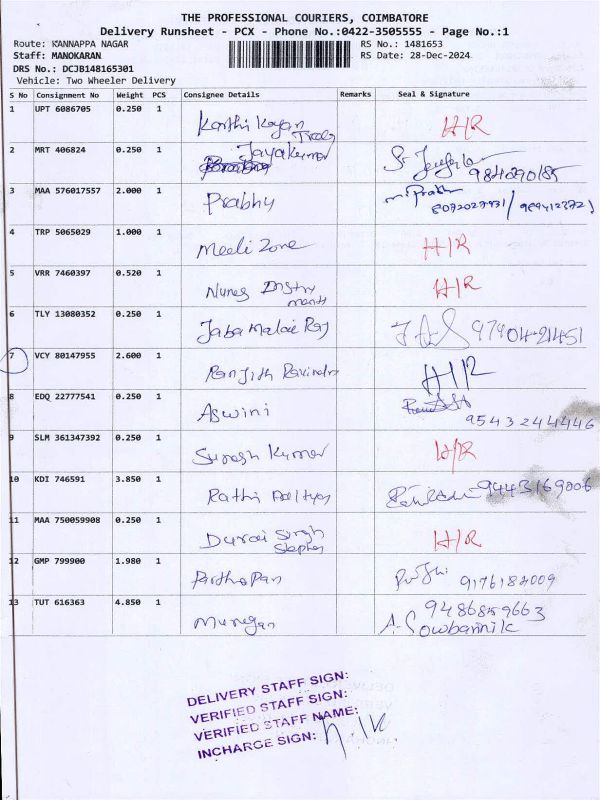 THE PROFESSIONAL COURIERS, COIMBATORE
Delivery Runsheet - PCX - Phone No.:0422-3505555 - Page No.:1
Route: KANNAPPA NAGAR RS No.: 1481653
Staff: MANOKARAN RS Date: 28-Dec-2024
DRS No.: DCJB148165301
Vehicle: Two Wheeler Delivery
S No Consignment No Weight PCS Consignee Details Remarks Seal & Signature
1 UPT 6086705 0.250 1 Karthi H/R
2 MRT 406824 0.250 1 Jayakumar 984290185
3 MAA 576017557 2.000 1 Prabhu
4 TRP 5065029 1.000 1 Medi Zone H/R
5 VRR 7460397 0.520 1 H/R
6 TLY 13080352 0.250 1 Jaba Malai Raj 97904-21451
7 VCY 80147955 2.600 1 Ranjith Ravindra H/R
8 EDQ 22777541 0.250 1 Aswini 9543244446
9 SLM 361347392 0.250 1 Suresh Kumar H/R
10 KDI 746591 3.850 1 Rathi 9443169006
11 MAA 750059908 0.250 1 Durai Singh H/R
Stephen
12 GMP 799900 1.980 1 9176182009
13 TUT 616363 4.850 1 Murugan 9486859663
A. Sowbarnika
DELIVERY STAFF SIGN:
VERIFIED STAFF SIGN:
VERIFIED STAFF NAME:
INCHARGE SIGN: